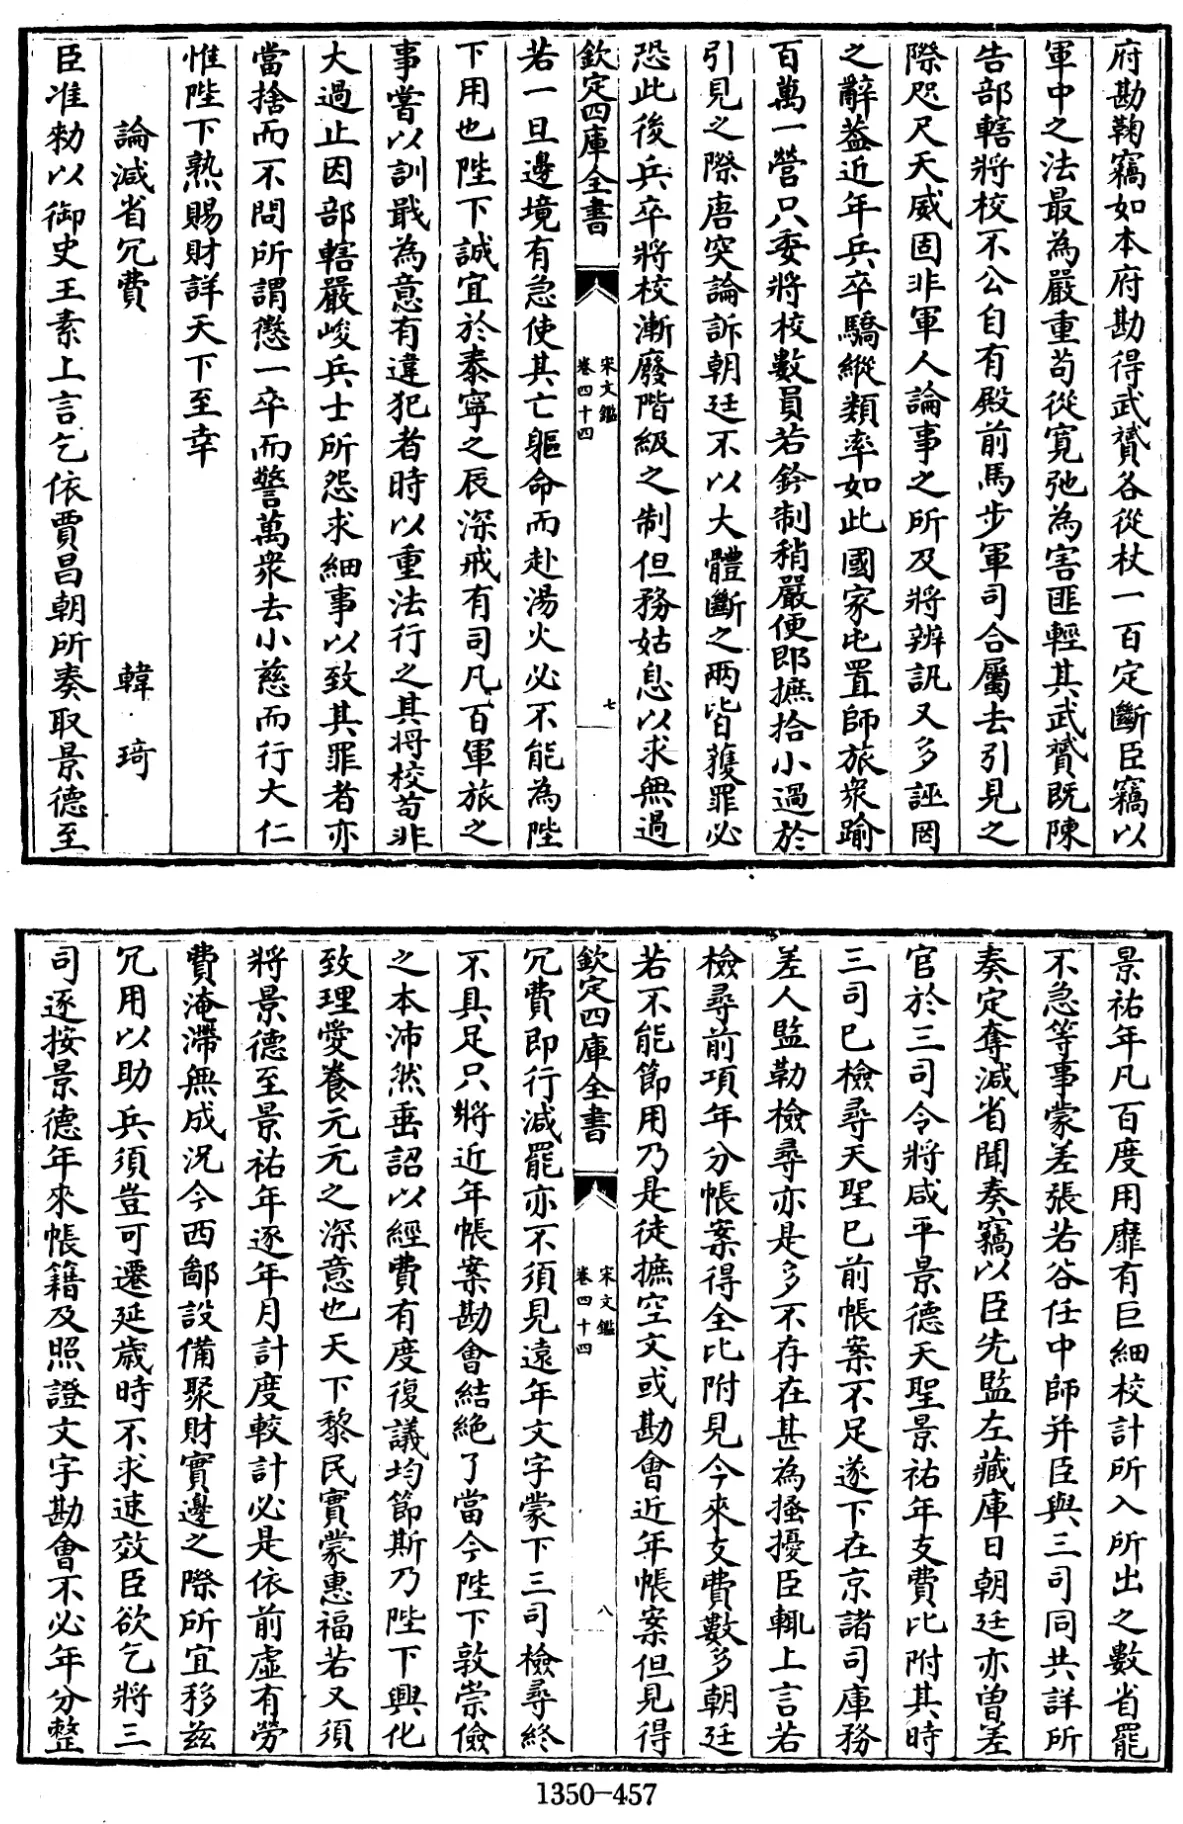 府勘鞠竊如本府勘得武贇各從杖一百定斷臣竊以
軍中之法最為嚴重苟從寛弛為害匪輕其武贇既陳
告部轄將校不公自有殿前馬步軍司合屬去引見之
際咫尺天威固非軍人論事之所及將辨訊又多誣罔
之辭葢近年兵卒驕縱類率如此國家屯置師旅衆踰
百萬一營只委將校數員若鈐制稍嚴便即摭拾小過於
引見之際唐突論訴朝廷不以大體斷之兩皆獲罪必
恐此後兵卒將校漸廢階級之制但務姑息以求無過
欽定四庫全書
宋文鑑
卷四十四
七
若一旦邊境有急使其亡軀命而赴湯火必不能為陛
下用也陛下誠宜於泰寧之辰深戒有司凡百軍旅之
事嘗以訓戢為意有違犯者時以重法行之其將校苟非
大過止因部轄嚴峻兵士所怨求細事以致其罪者亦
當捨而不問所謂懲一卒而警萬衆去小慈而行大仁
惟陛下熟賜財詳天下至幸
論減省冗費 韓琦
臣准勑以御史王素上言乞依賈昌朝所奏取景德至
景祐年凡百度用靡有巨細校計所入所出之數省罷
不急等事蒙差張若谷任中師并臣與三司同共詳所
奏定奪減省聞奏竊以臣先監左藏庫日朝廷亦曽差
官於三司令將咸平景德天聖景祐年支費比附其時
三司已檢尋天聖已前帳案不足遂下在京諸司庫務
差人監勒檢尋亦是多不存在甚為搔擾臣輒上言若
檢尋前項年分帳案得全比附見今來支費數多朝廷
若不能節用乃是徒摭空文或勘會近年帳案但見得
欽定四庫全書
宋文鑑
卷四十四
八
冗費即行減罷亦不須見遠年文字蒙下三司檢尋終
不具足只將近年帳案勘會結絶了當今陛下敦崇儉
之本沛然垂詔以經費有度復議均節斯乃陛下興化
致理愛養元元之深意也天下黎民實蒙惠福若又須
將景德至景祐年逐年月計度較計必是依前虛有勞
費淹滯無成况今西鄙設備聚財實邊之際所宜移兹
冗用以助兵須豈可遷延歲時不求速效臣欲乞將三
司逐按景德年來帳籍及照證文字勘會不必年分整
1350-457